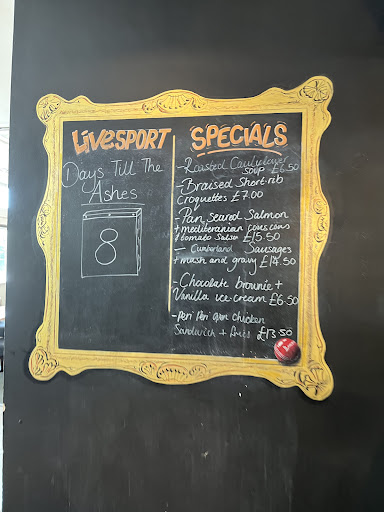 LIVESPORT
Days Till The
Ashes
8
SPECIALS
- Roasted Cauliflower
SOUP £6.50
- Braised Short rib
croquettes £7.00
- Pan seared Salmon
+ mediteranian couscous
+ tomato Salsa £15.50
- Cumberland Sausages
+ mash and gravy £14.50
- Chocolate brownie +
Vanilla ice cream £6.50
- Peri Peri chicken
Sandwich + fries £13.50